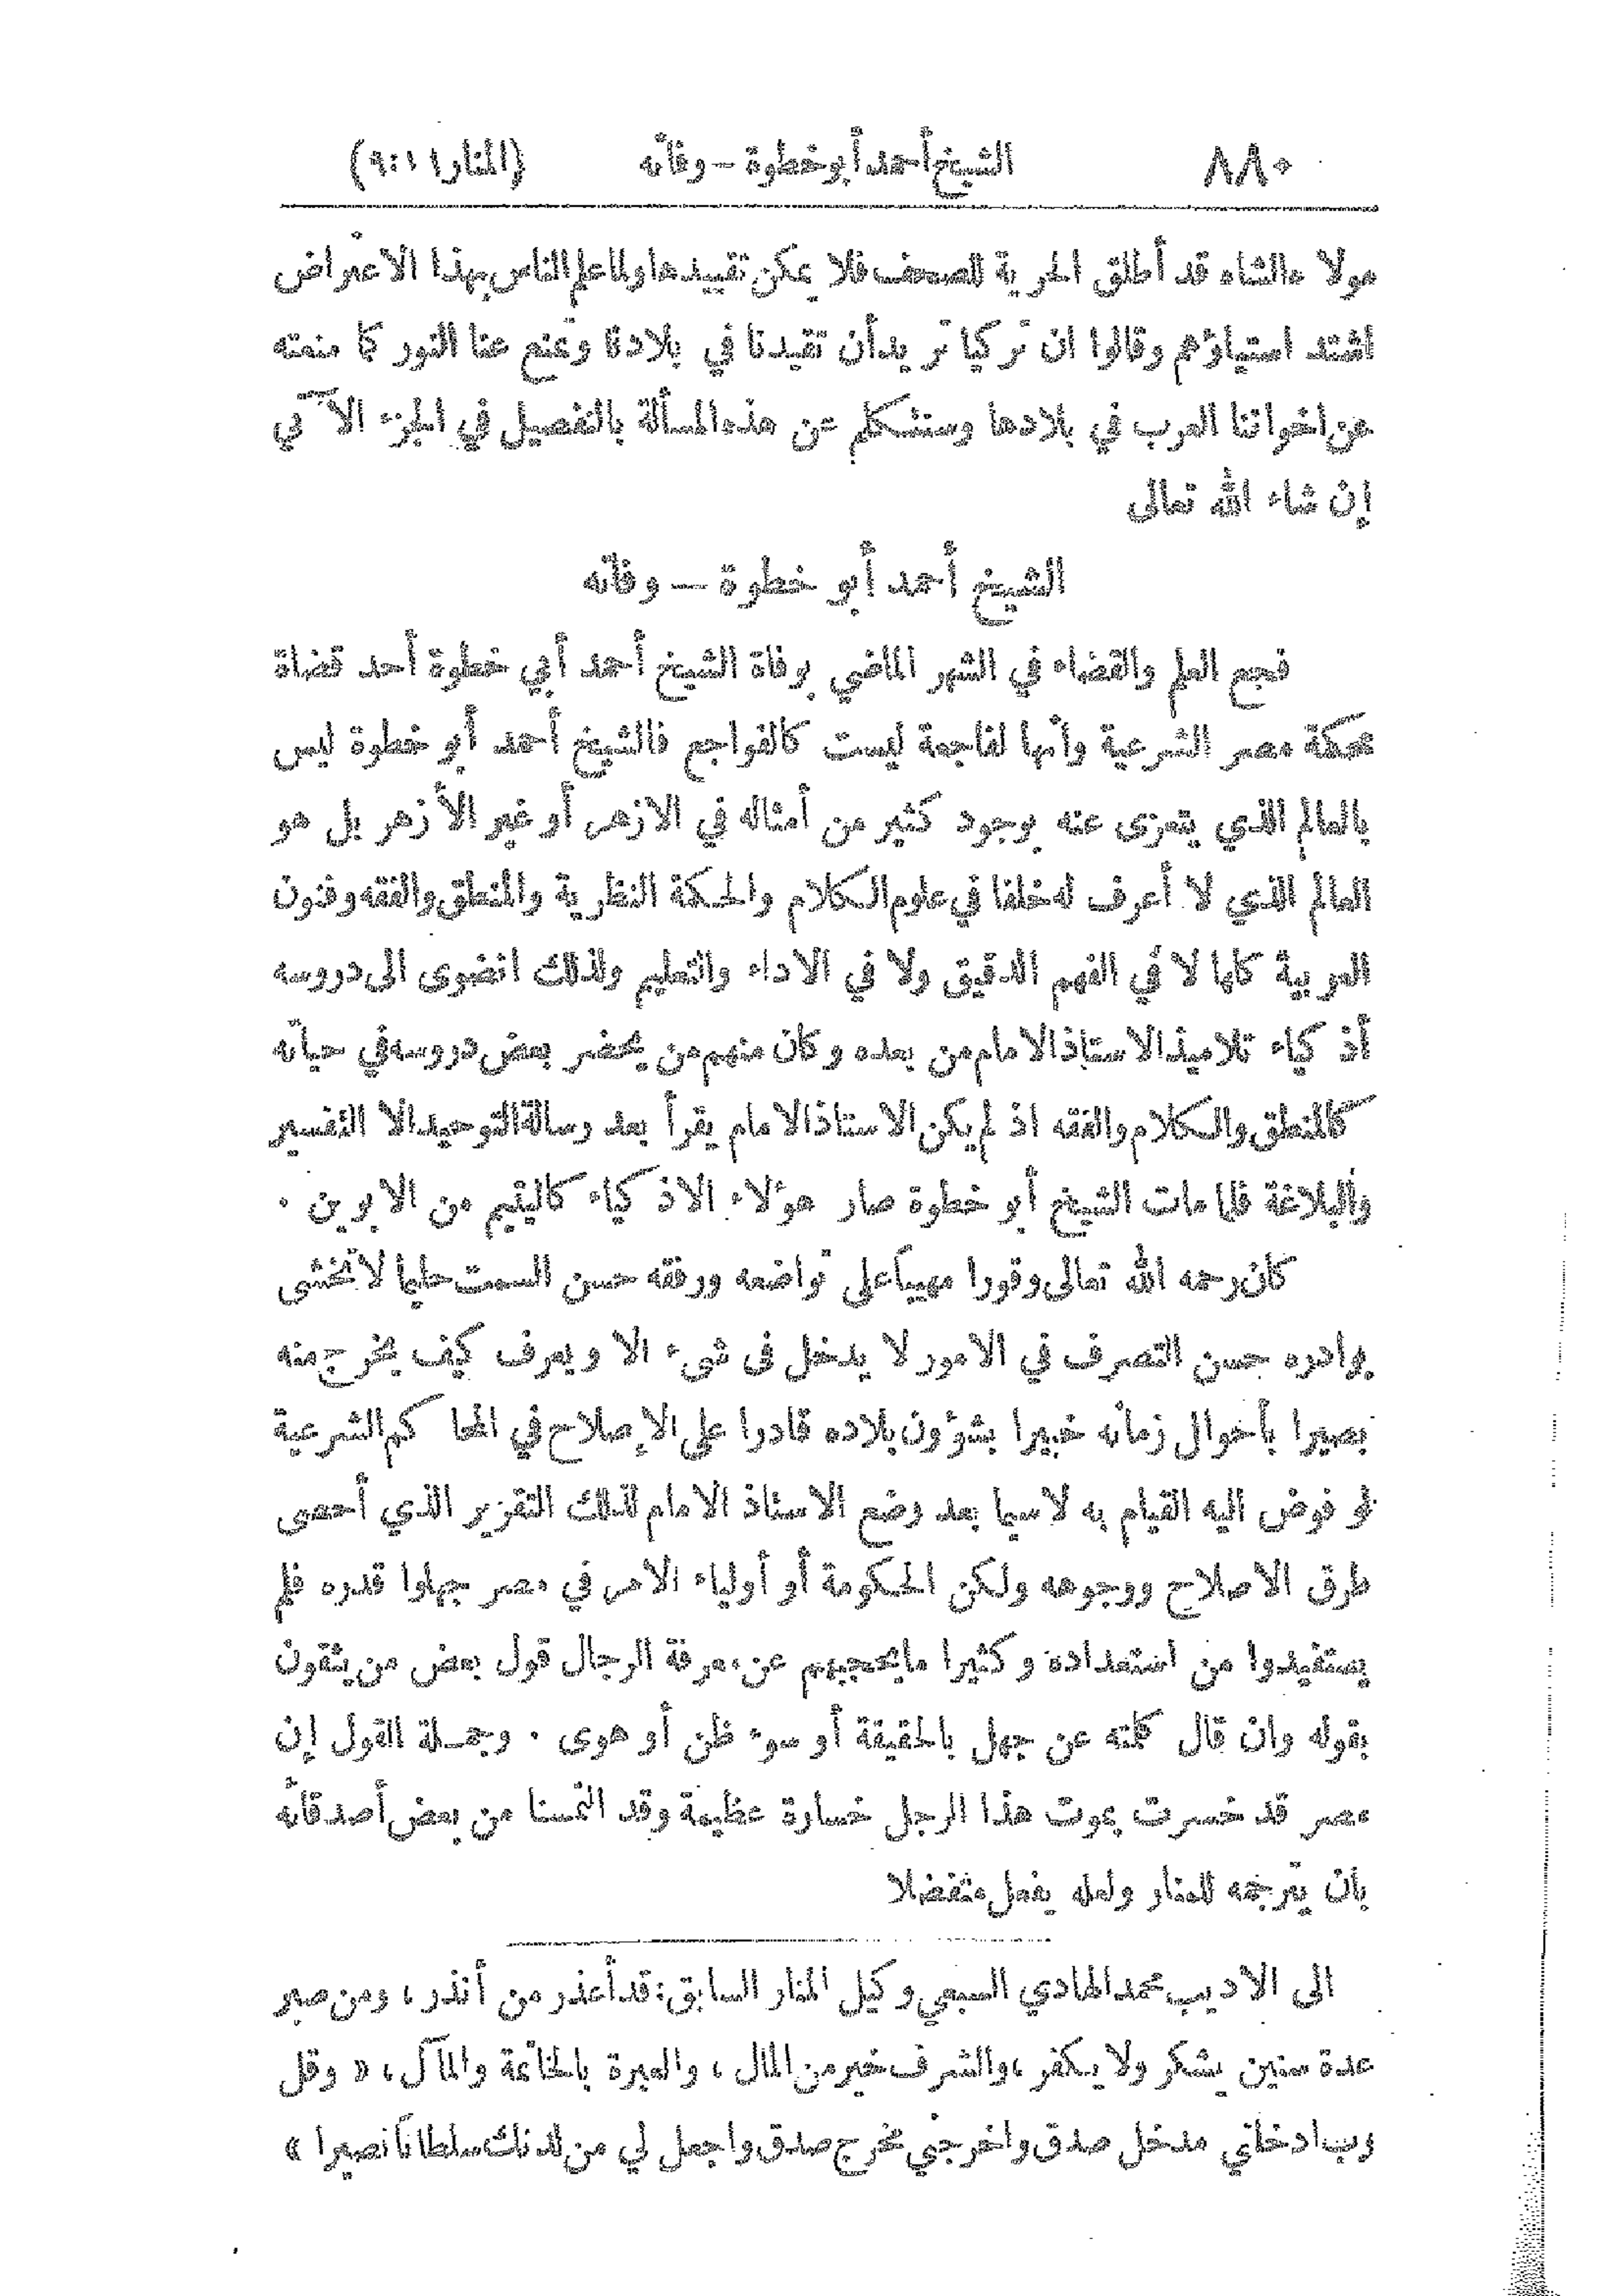 ٨٨٠ الشيخ أحمد أبو خطوة – وفاته (المنار ١١: ٩)
مولانا الشاه قد أطلق الحرية للصحف فلا يمكن تقييدها ولما علم الناس بهذا الاعتراض
اشتد استياؤهم وقالوا ان تركيا تريد أن تقيدنا في بلادنا وتمنع عنا النور كما منعته
عن اخواننا العرب في بلادها وستتكلم عن هذه المسألة بالتفصيل في الجزء الآتي
إن شاء الله تعالى
الشيخ أحمد أبو خطوة – وفاته
فجع العلم والقضاء في الشهر الماضي بوفاة الشيخ أحمد أبي خطوة أحد قضاة
محكمة مصر الشرعية وانها لفاجعة ليست كالفواجع فالشيخ أحمد أبو خطوة ليس
بالعالم الذي يتعزى عنه بوجود كثير من أمثاله في الازهر أو غير الأزهر بل هو
العالم الذي لا أعرف له خلفا في علوم الكلام والحكمة النظرية والمنطق والفقه وفنون
العربية كلها لا في الفهم الدقيق ولا في الاداء والتعليم ولذلك انضوى الى دروسه
أذكياء تلاميذ الاستاذ الامام من بعده وكان منهم من يحضر بعض دروسه في حياته
كالمنطق والكلام والفقه اذ لم يكن الاستاذ الامام يقرأ بعد رسالة التوحيد الا التفسير
والبلاغة فلما مات الشيخ أبو خطوة صار هؤلاء الاذكياء كاليتيم من الابوين .
كان رحمه الله تعالى وقورا مهيباً على تواضعه ورفقه حسن السمت حليما لا تخشى
بوادره حسن التصرف في الامور لا يدخل في شيء الا ويعرف كيف يخرج منه
بصيرا بأحوال زمانه خبيرا بشؤون بلاده قادرا على الإصلاح في المحاكم الشرعية
لو فوض اليه القيام به لا سيما بعد وضع الاستاذ الامام لذلك التقرير الذي أحصى
طرق الاصلاح ووجوهه ولكن الحكومة أو أولياء الامر في مصر جهلوا قدره فلم
يستفيدوا من استعداده وكثيرا ما يحجبهم عن معرفة الرجال قول بعض من يثقون
بقوله وان قال كلمته عن جهل بالحقيقة أو سوء ظن أو هوى . وجملة القول إن
مصر قد خسرت بموت هذا الرجل خسارة عظيمة وقد التمسنا من بعض أصدقائه
بان يترجمه للمنار ولعله يفعل متفضلا
الى الاديب محمد الهادي السبعي وكيل المنار السابق: قد أعذر من أنذر، ومن صبر
عدة سنين يشكر ولا يكفر، والشرف خير من المال، والعبرة بالخاتمة والمآل، « وقل
رب ادخلني مدخل صدق واخرجني مخرج صدق واجعل لي من لدنك سلطاناً نصيرا »